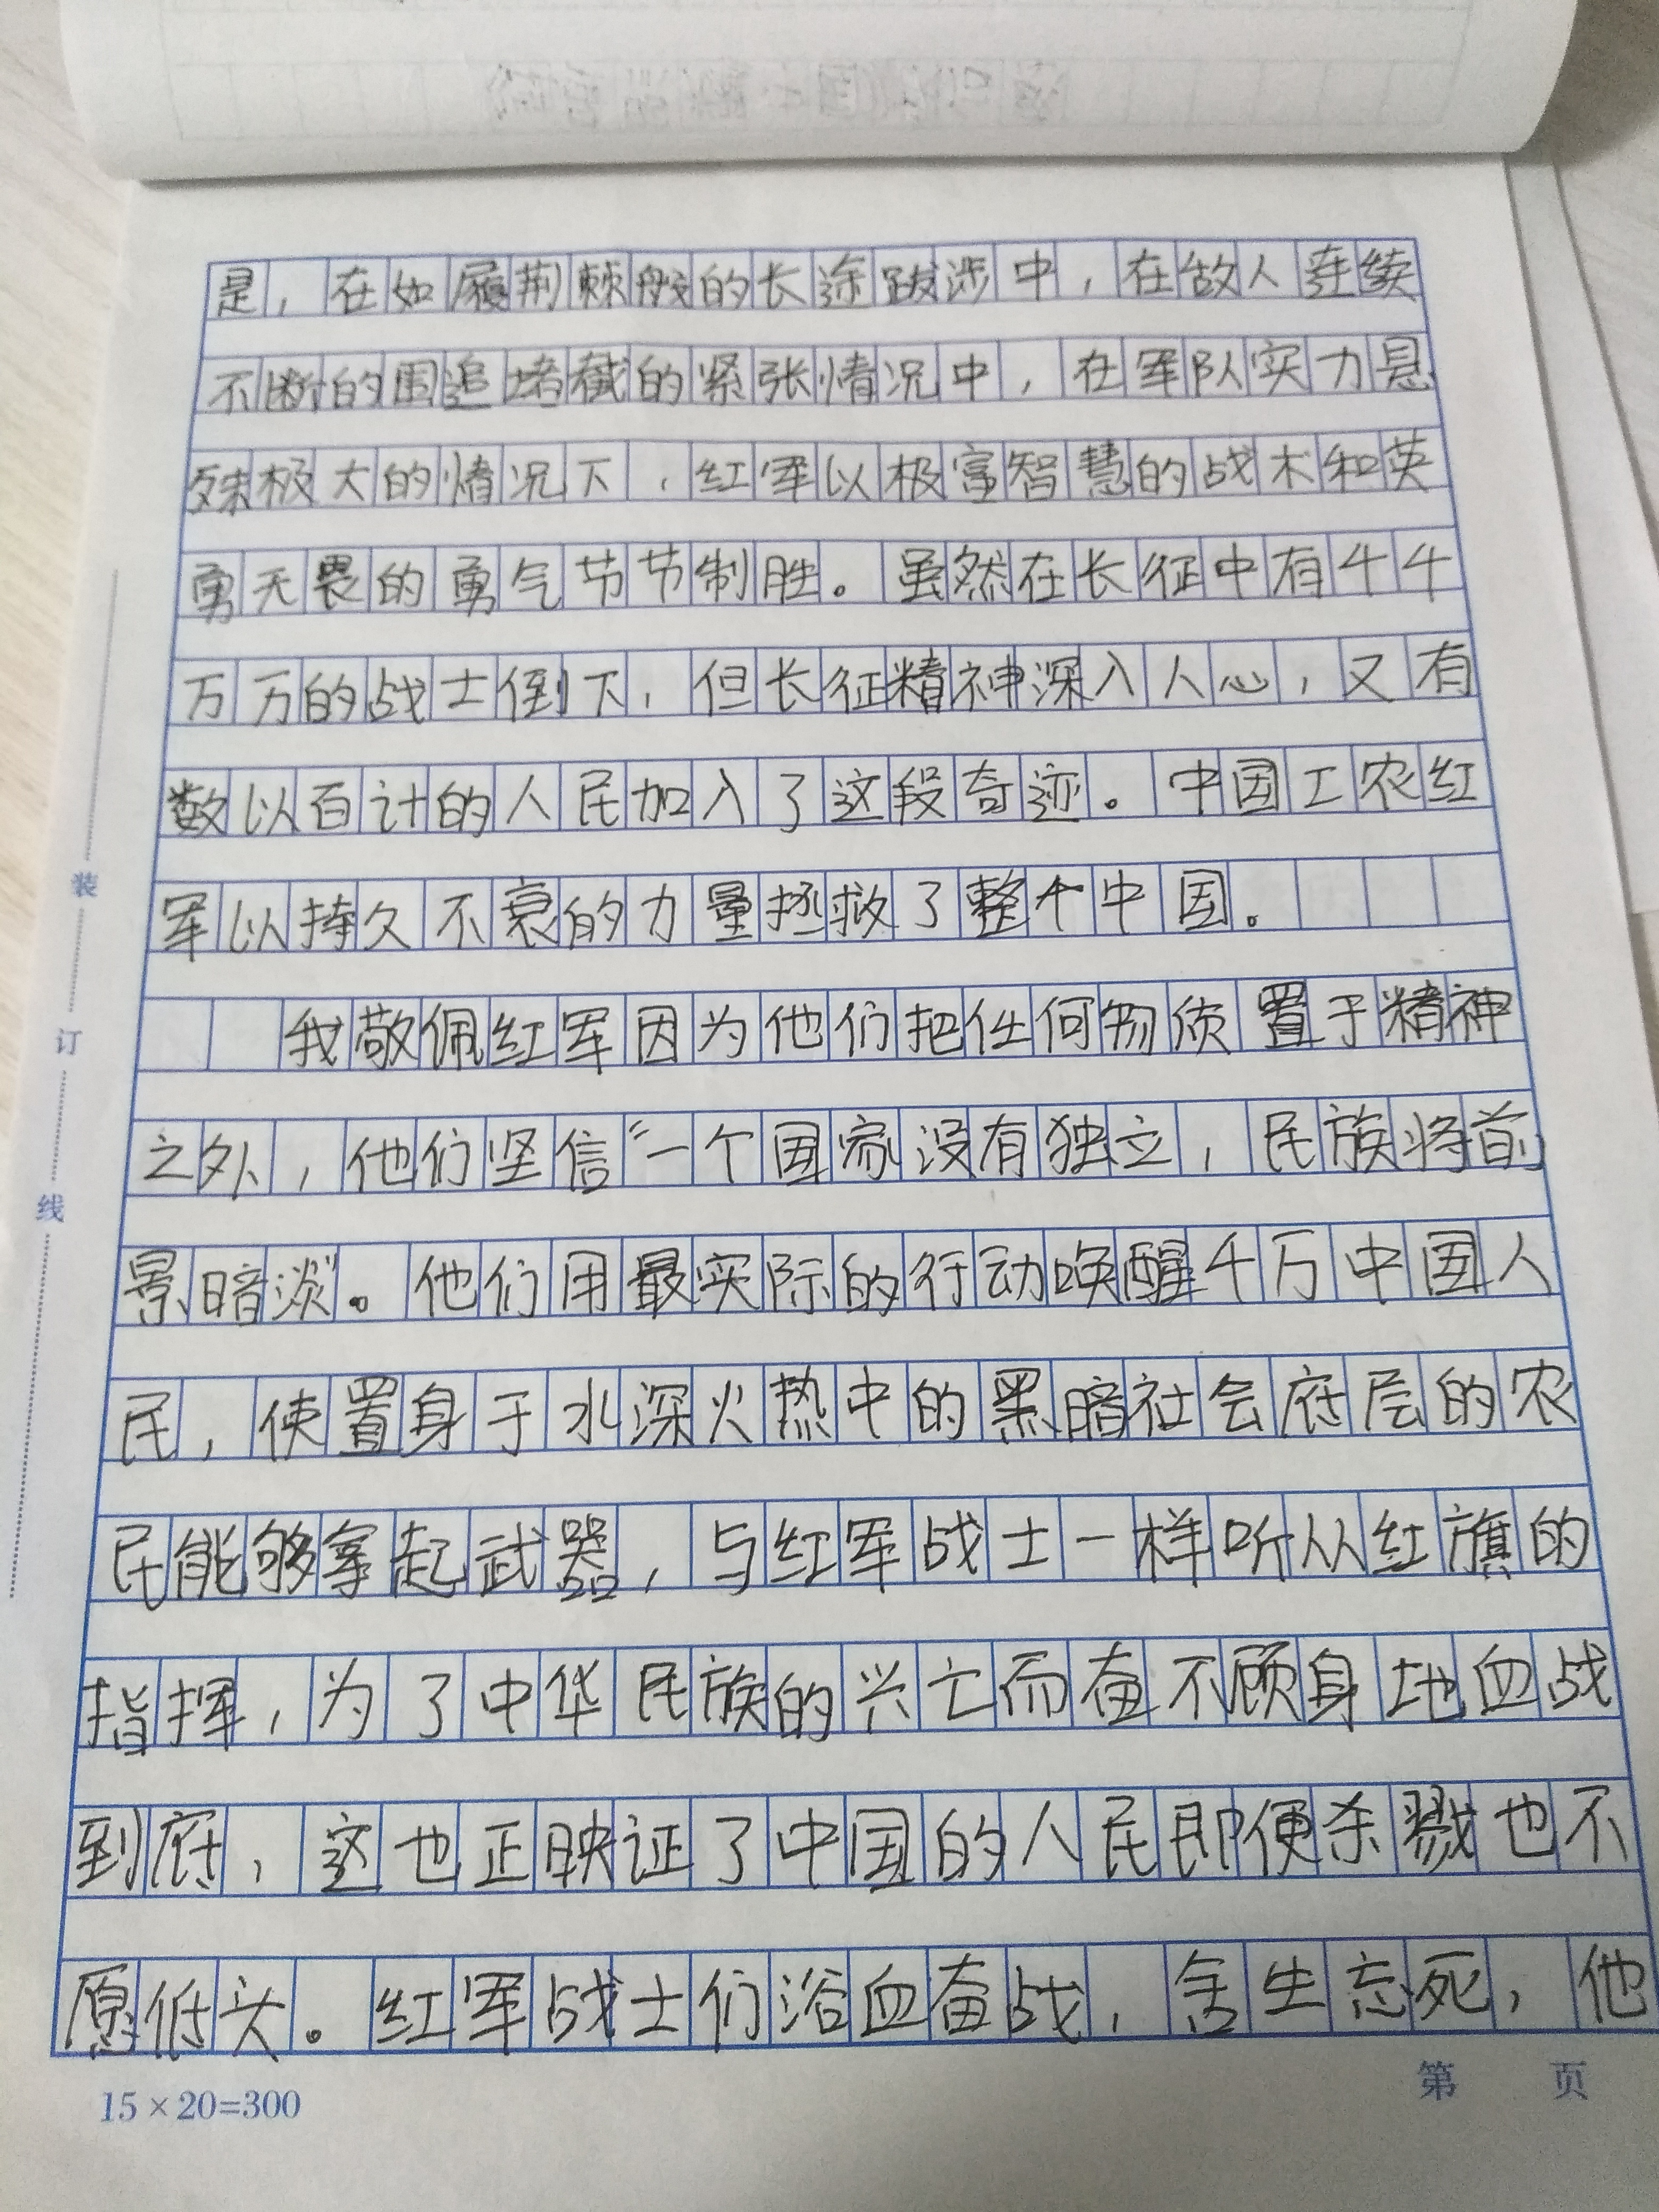 是，在如履荆棘般的长途跋涉中，在敌人连续
不断的围追堵截的紧张情况中，在军队实力悬
殊极大的情况下，红军以极富智慧的战术和英
勇无畏的勇气节节制胜。虽然在长征中有千千
万万的战士倒下，但长征精神深入人心，又有
数以百计的人民加入了这段奇迹。中国工农红
军以持久不衰的力量拯救了整个中国。
我敬佩红军因为他们把任何物质置于精神
之外，他们坚信“一个国家没有独立，民族将前
景暗淡”。他们用最实际的行动唤醒千万中国人
民，使置身于水深火热中的黑暗社会底层的农
民能够拿起武器，与红军战士一样听从红旗的
指挥，为了中华民族的兴亡而奋不顾身地血战
到底，这也正映证了中国的人民即便杀戮也不
愿低头。红军战士们浴血奋战，舍生忘死，他
装
订
线
15×20=300
第 页